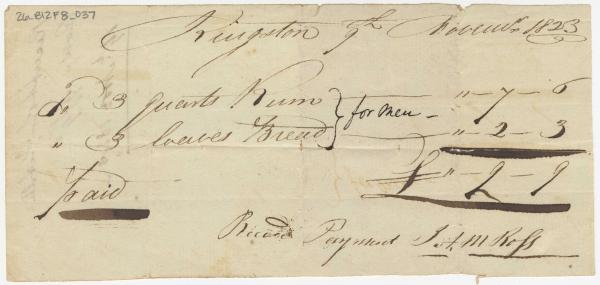 26.B12F8_037
Kingston 9th Novembr 1823
To 3 quarts Rum } for men - " - 7 - 6
" 3 loaves Bread } " - 2 - 3
Paid £ " - 9 - 9
Recd Payment J. A. M Ross